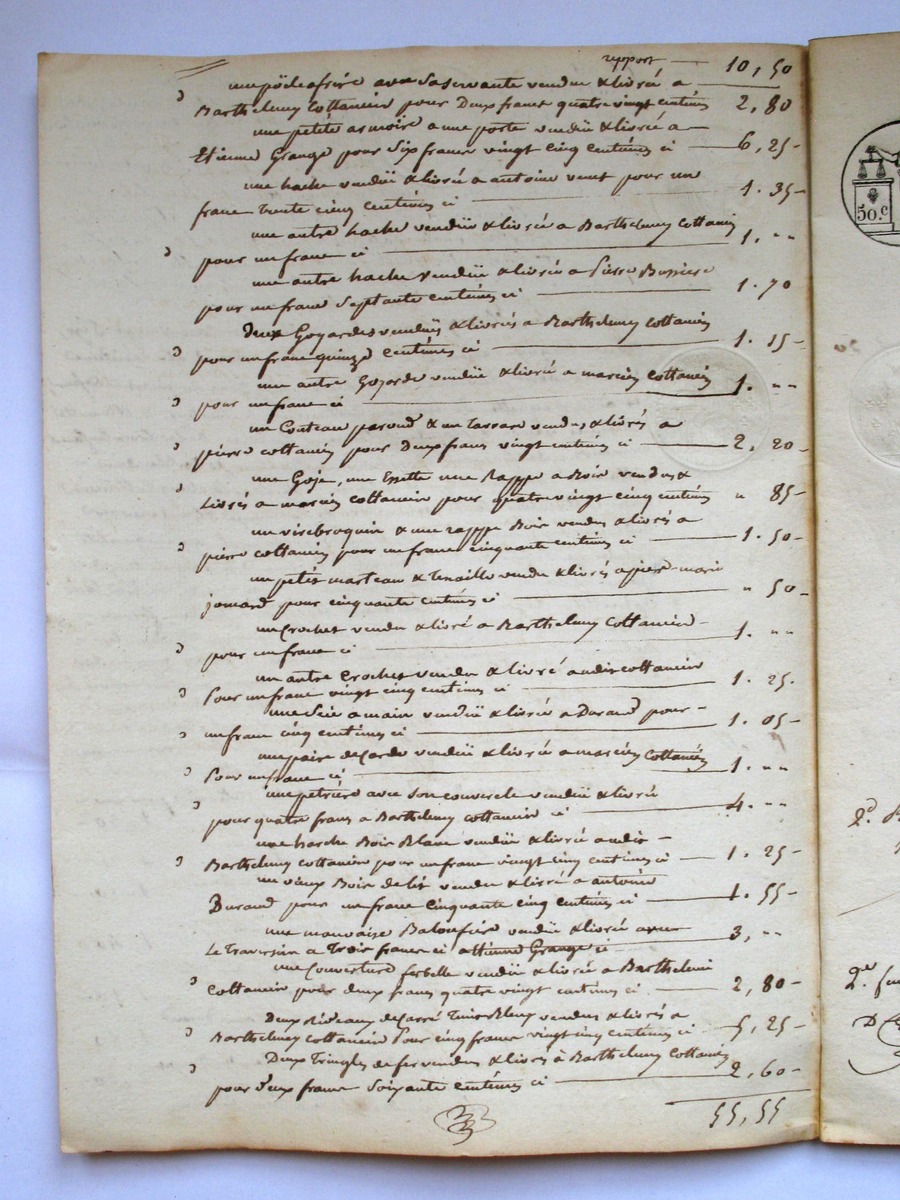 report — 10,50
une pöele a frire avec sa servante vendue & livrée a
Barthelemy Cottancin pour Deux francs quatre vingt centimes 2,80
une petite armoire a une porte vendüe & livrée a
Etienne Grange pour Six francs vingt cinq centimes ci — 6,25
une hache vendüe & livrée a antoine pour un
franc trente cinq centimes ci — 1.35
une autre hache vendüe & livrée a Barthelemy Cottancin
pour un franc ci — 1. ""
une autre hache vendüe & livrée a Pierre Bussiere
pour un franc Septante centimes ci — 1.70
deux Goyardes vendües & livrés a Barthelemy Cottancin
pour un franc quinze centimes ci — 1.15
une autre Goyarde vendüe & livrée a marcien Cottancin
pour un franc ci — 1. ""
un Couteau paroud & un tarrare vendus & livrés a
pierre cottancin pour Deux francs vingt centimes ci — 2,20
une Goje, une Essette une Rappe a Bois vendus &
Livrés a marcien cottancin pour quatre vingt cinq centimes " 85
un virebroquin & une rappe Bois vendus & livrés a
pierre cottancin pour un franc cinquante centimes ci — 1.50
un petit marteau & tenaille vendu & livrés a pierre marie
jomard pour cinquante centimes ci — " 50
un Crochet vendu & livré a Barthelemy Cottancin
pour un franc ci — 1. ""
un autre Crochet vendu & livré audit cottancin
Pour un franc vingt cinq centimes ci — 1.25
une Scie a main vendüe & livrée a Durand pour
un franc cinq centimes ci — 1.05
une paire de Carde vendüe & livrée a marcien Cottancin
Pour un franc ci — 1. ""
une petrière avec son couvercle vendüe & livrée
pour quatre francs a Barthelemy cottancin ci — 4. ""
une harche Bois Blanc vendüe & livrée audit
Barthelemy cottancin pour un franc vingt cinq centimes ci — 1.25
un vieux Bois de lit vendu & livré a antoine
Durand pour un franc cinquante cinq centimes ci — 1.55
une mauvaise Baloufière vendüe & livrée avec
Le Traversin a Trois francs ci a etienne Grange ci — 3, ""
une Couverture vendüe & livrée a Barthelemi
Cottancin pour deux francs quatre vingt centimes ci — 2,80
Deux Rideaux de Carré vendus & livrés a
Barthelemy cottancin Pour cinq francs vingt cinq centimes ci — 5,25
Deux Tringles de fer vendus & livrés a Barthelemy Cottancin
pour deux francs Soixante centimes ci — 2,60
55,55
50.c